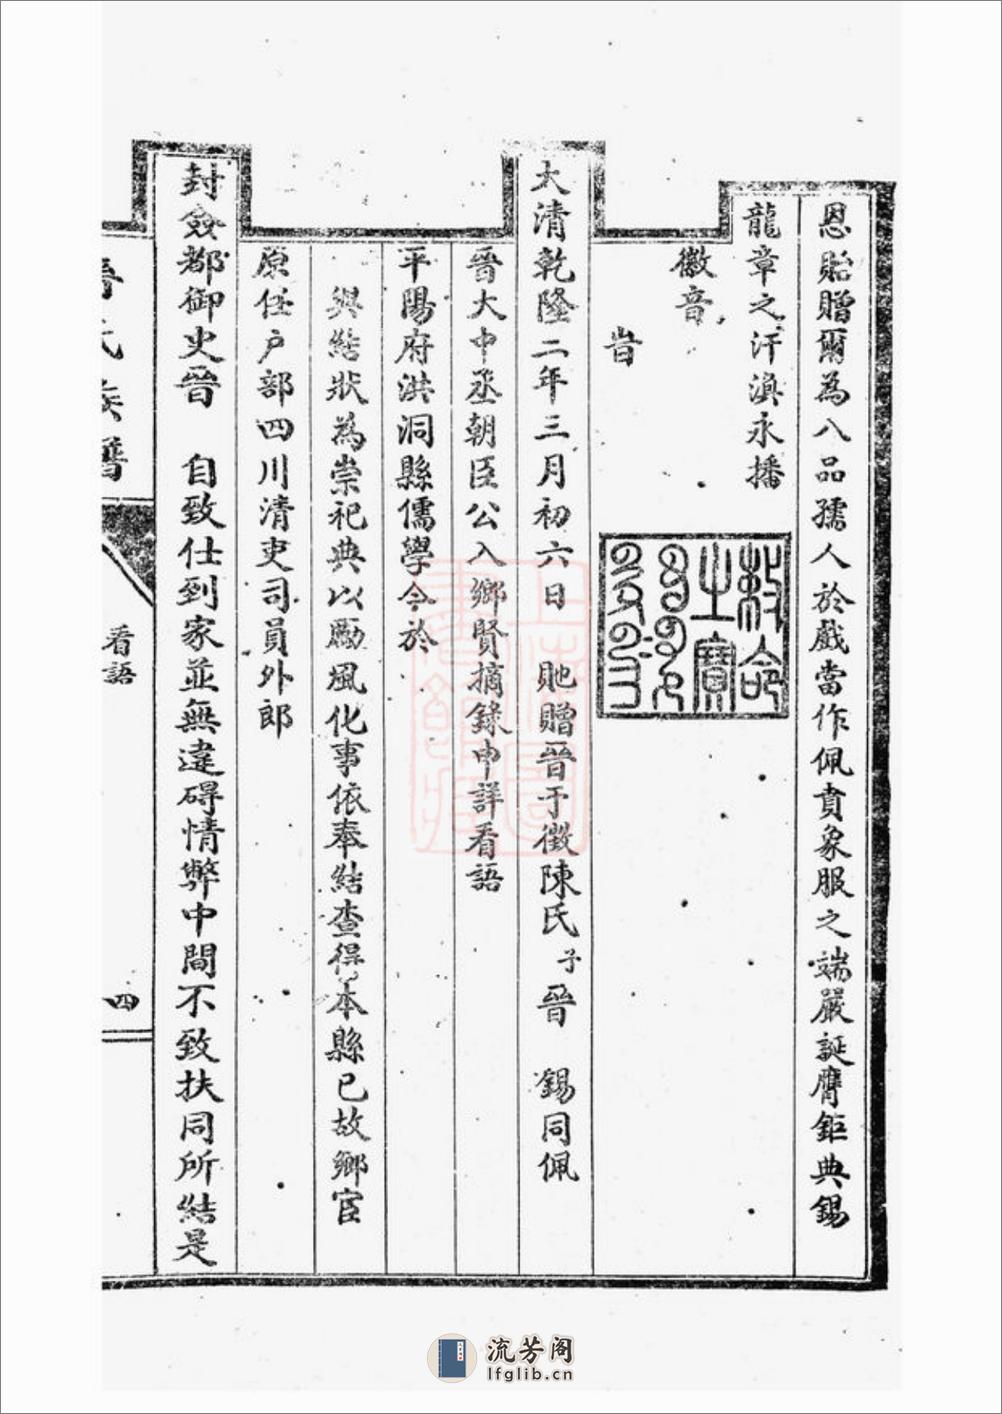 恩貽贈爾為八品孺人於戲當作佩賁象服之端嚴誕膺鉅典錫
龍章之汗渙永播
徽音
旹
敕命之寶
大清乾隆二年三月初六日 貤贈晉于徵陳氏子晉 錫同佩
晉大中丞朝臣公入鄉賢摘錄申詳看語
平陽府洪洞縣儒學今於
與結狀為崇祀典以勵風化事依奉結查得本縣已故鄉宦
原任户部四川清吏司員外郎
封僉都御史晉 自致仕到家並無違碍情弊中間不致扶同所結是
晉氏族譜
看語
四
上海圖書館藏
流芳阁
lfglib.cn